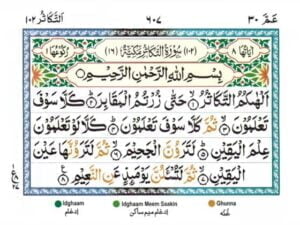 اَلتَّكَاثُر ١٠٢ ٦٠٧ عَمَّ ٣٠
اٰيَاتُهَا ٨ (١٠٢) سُوْرَةُ التَّكَاثُرِ مَكِّيَّةٌ (١٦) رُكُوْعُهَا ١
بِسْمِ اللّٰهِ الرَّحْمٰنِ الرَّحِيْمِ
اَلْهٰىكُمُ التَّكَاثُرُ ۙ حَتّٰى زُرْتُمُ الْمَقَابِرَ ۙ كَلَّا سَوْفَ
تَعْلَمُوْنَ ۙ ثُمَّ كَلَّا سَوْفَ تَعْلَمُوْنَ ۙ كَلَّا لَوْ تَعْلَمُوْنَ
عِلْمَ الْيَقِيْنِ ۙ لَتَرَوُنَّ الْجَحِيْمَ ۙ ثُمَّ لَتَرَوُنَّهَا عَيْنَ
الْيَقِيْنِ ۙ ثُمَّ لَتُسْـَٔلُنَّ يَوْمَئِذٍ عَنِ النَّعِيْمِ ۙ
Idghaam Idghaam Meem Saakin Ghunna
ادغام ادغام میم ساکن غنّہ